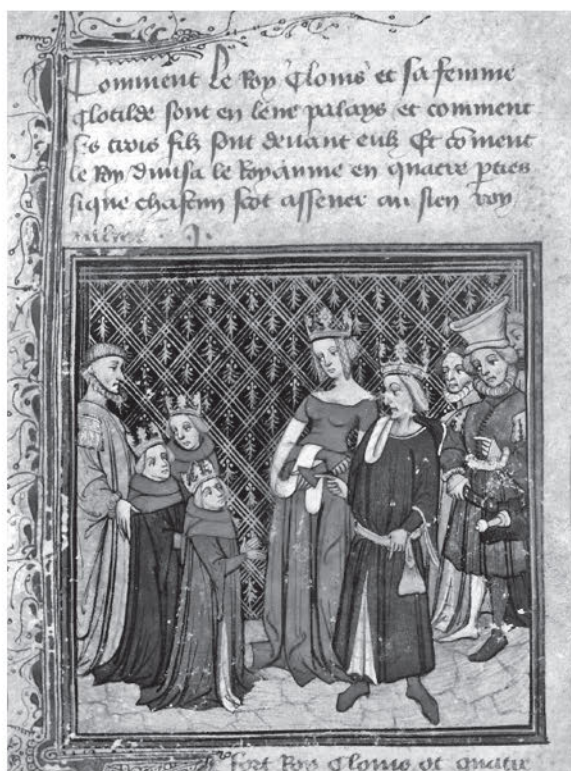 Comment Le Roy Clouis et sa femme
Clotilde sont en leur palays et comment
ses trois filz sont deuant eulz Et coment
le Roy diuisa le Royaume en quatre pties
sique chascun scot assener au sien roy
fort Roy Clouis ot quatre